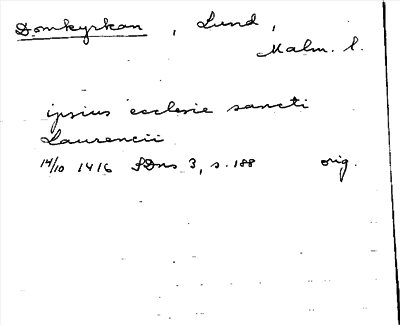 Domkyrkan, Lund,
Malm. l.
ipsius ecclesie sancti
Laurencii
14/10 1416 SDns 3, s. 188 orig.